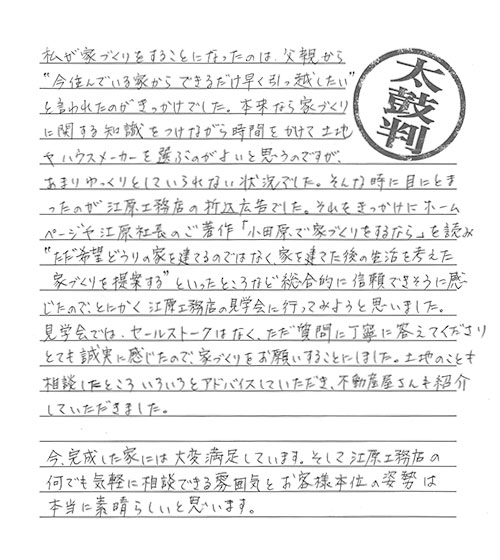 私が家づくりをすることになったのは、父親から
"今住んでいる家から できるだけ早く引っ越したい"
と言われたのがきっかけでした。本来なら家づくり
に関する知識をつけながら時間をかけて土地
やハウスメーカーを選ぶのがよいと思うのですが、
あまりゆっくりとしていられない状況でした。そんな時に目にとま
ったのが江原工務店の折込広告でした。それをきっかけにホーム
ページや江原社長のご著作「小田原で家づくりをするなら」を読み
"ただ希望どうりの家を建てるのではなく、家を建てた後の生活を考えた
家づくりを提案する"といったところなど総合的に信頼できそうに感
じたので、とにかく江原工務店の見学会に行ってみようと思いました。
見学会では、セールストークはなく、ただ質問に丁寧に答えてくださり
とても誠実に感じたので、家づくりをお願いすることにしました。土地のことも
相談したところいろいろとアドバイスしていただき、不動産屋さんも紹介
していただきました。
今、完成した家には大変満足しています。そして江原工務店の
何でも気軽に相談できる雰囲気とお客様本位の姿勢は
本当に素晴らしいと思います。
太鼓判